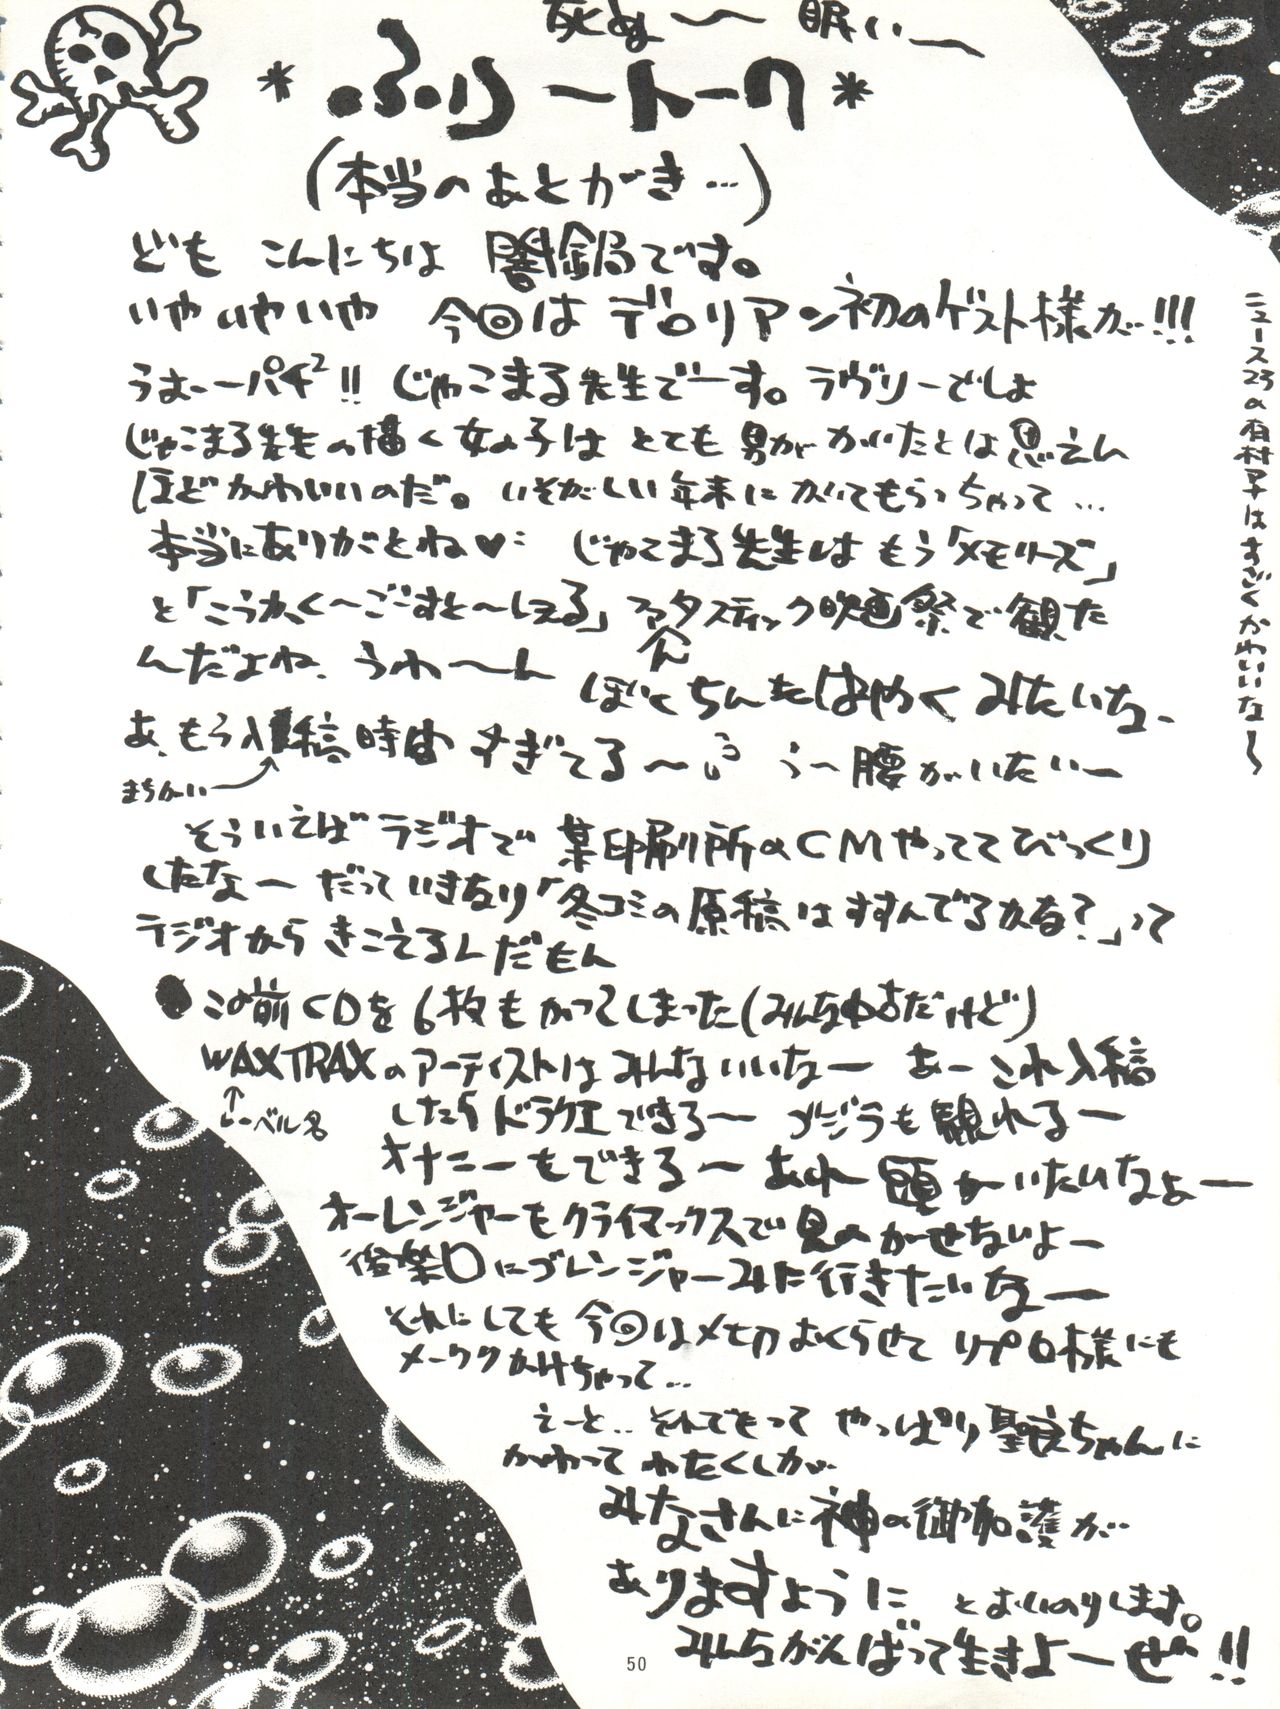 死ぬ〜 眠い〜
*ふりートーク*
(本当のあとがき…)
ども こんにちは 闇鍋です。
いやいやいや 今回は デロリアン初のゲスト様が!!!
うぉーパチ²!! じゃこまる先生でーす。ラヴリーでしょ
じゃこまる先生の描く女の子は とても 男が かいたとは思えん
ほどかわいいのだ。いそがしい年末に かいてもらっちゃって…
本当にありがとね♥ じゃこまる先生は もう「メモリーズ」
と「こうかく〜ごーすと〜しぇる」ファンタスティック映画祭で観た
んだよね、うわ〜ん ぼくちんたはやくみたいな、
あ、もう入稿時間すぎてる〜 う〜腰がいたいー
まちがい
そういえばラジオで某印刷所のCMやっててびっくり
したなー だっていきなり「冬コミの原稿はすすんでるかな?」って
ラジオからきこえるんだもん
●この前CDを6枚もかってしまった(みんな中古だけど)
WAXTRAXのアーティストはみんないいなー あーこれ入稿
レーベル名
したらドラクエできる〜 ゴジラも観れるー
オナニーもできる〜 あれー頭がいたいなよー
オーレンジャーもクライマックスで見のがせないよー
後楽口にゴレンジャーみに行きたいなー
それにしても今回は〆切おくらせて リプロ様にも
メーワクかけちゃって…
えーと‥それでもって やっぱり聖良ちゃんに
かわって わたくしが
みなさんに神の御加護が
ありますように とおいのりします。
みんながんばって生きよーぜ!!
ニュース23の有村アナはすごくかわいいな〜
50